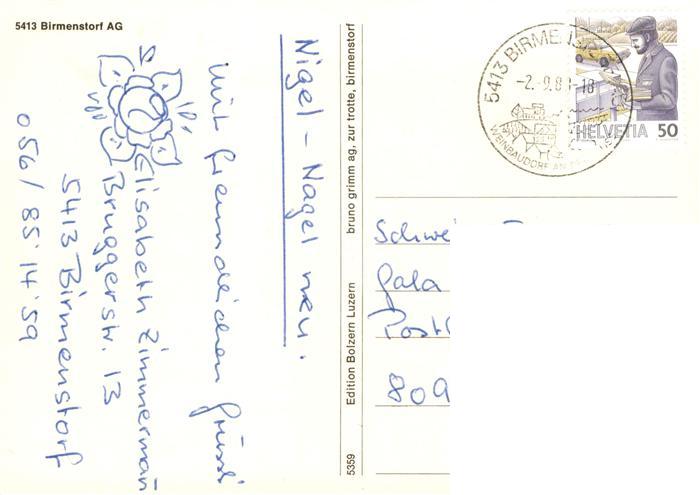 5413 Birmenstorf AG
Nigel - Nagel neu.
Mit freundlichen Grüssli
Elisabeth Zimmermann
Bruggerstr. 13
5413 Birmenstorf
056 / 85'14'59
bruno grimm ag, zur trotte, birmenstorf
Edition Bolzern Luzern
5359
5413 BIRMENS
-2.-9.8 -18
WEINBAUDORF AN
HELVETIA 50
Schwei
Pala
Post
809